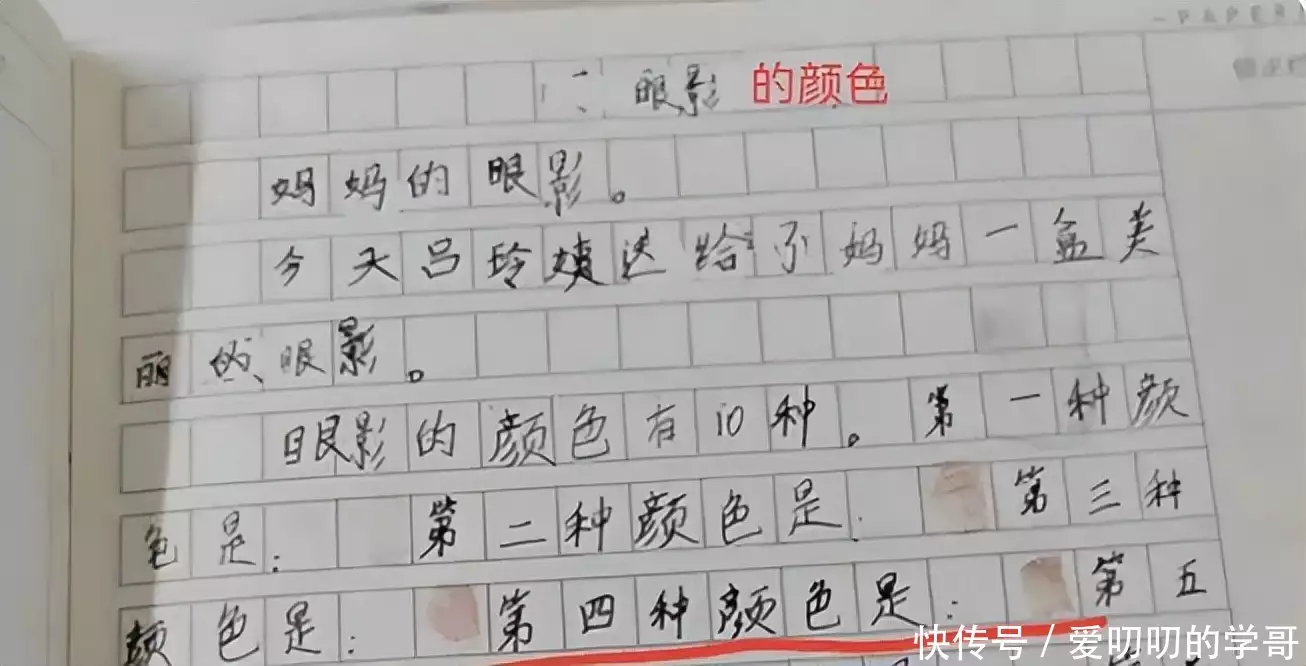 PAPER
眼影的颜色
妈妈的眼影。
今天吕玲姨送给了妈妈一盒美
丽的眼影。
眼影的颜色有10种。第一种颜
色是: 第二种颜色是: 第三种
颜色是: 第四种颜色是: 第五
快传号/爱叨叨的学哥